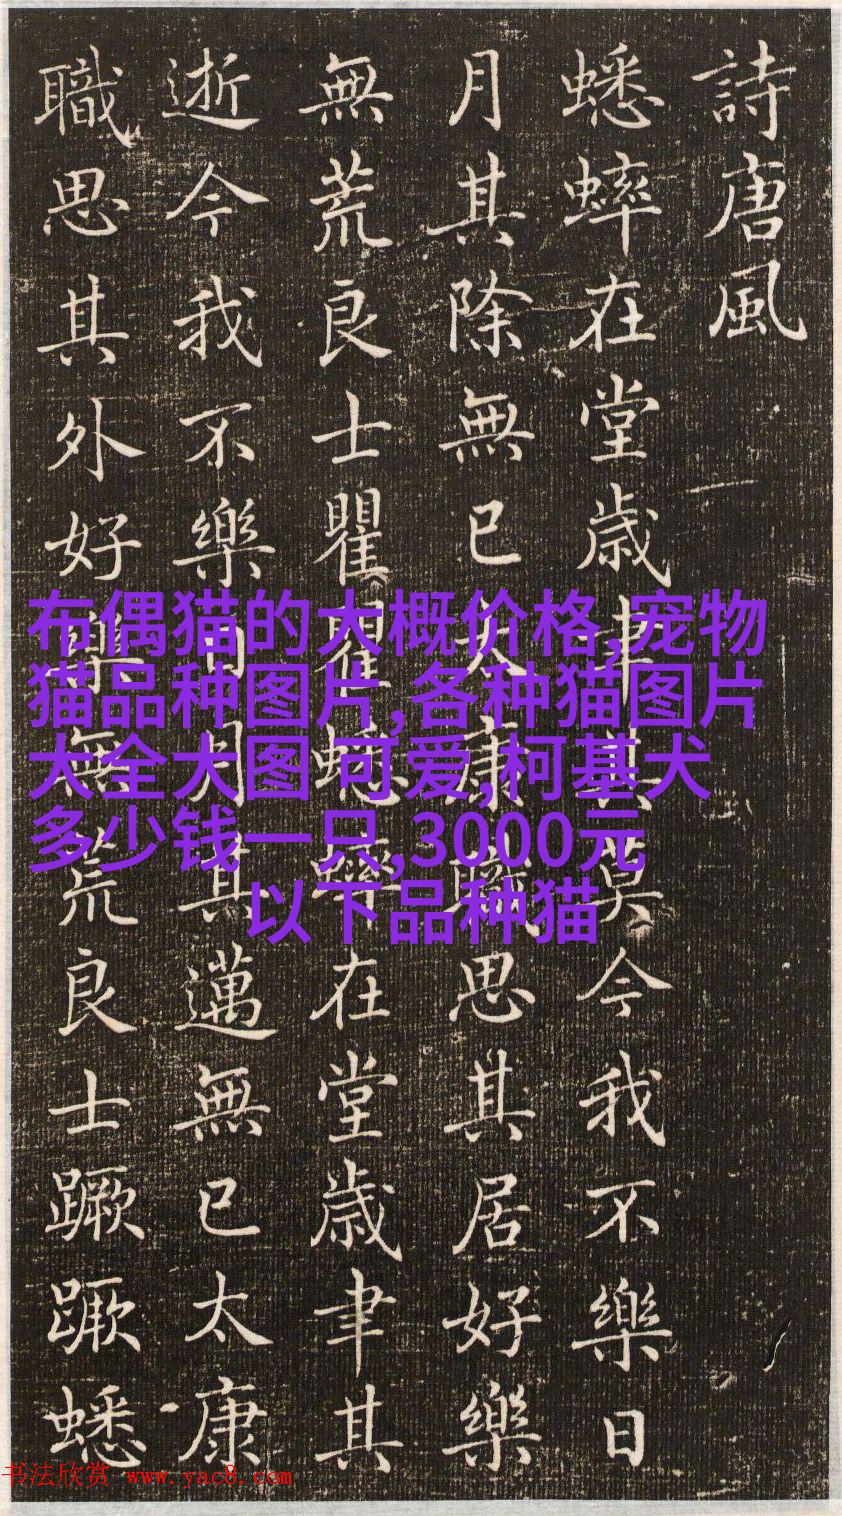 詩唐風
蟋蟀在堂歳聿其莫今我不樂日
月其除無已大康職思其居好樂
無荒良士瞿瞿蟋蟀在堂歳聿其
逝今我不樂日月其邁無已太康
職思其外好樂無荒良士蹶蹶蟋
布偶猫的大概价格,宠物
猫品种图片,各种猫图片
大全大图 可爱,柯基犬
多少钱一只,3000元
以下品种猫
书法欣赏 www.yac8.com